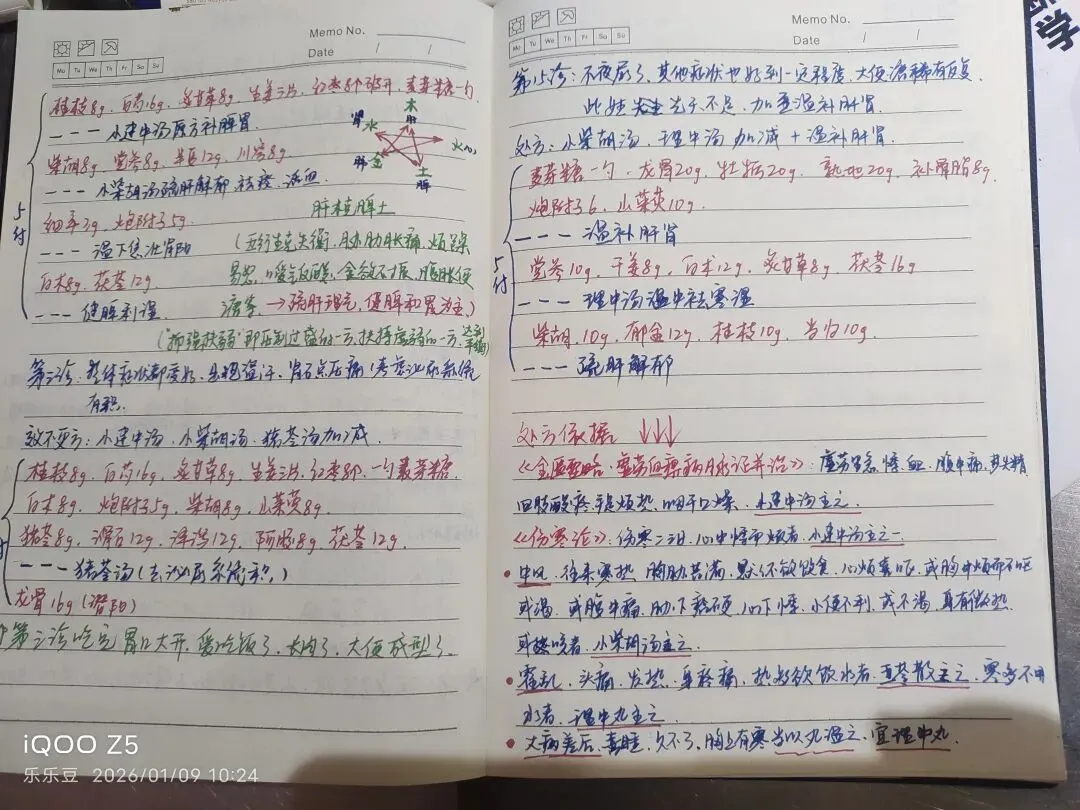 Memo No.
Date / /
Mo Tu We Th Fr Sa Su
桂枝8g 白芍16g 炙甘草8g 生姜3片 红枣8个掰开 麦芽糖一勺
--- 小建中汤原方补脾胃.
柴胡8g 党参8g 12g 川芎8g
--- 小柴胡汤疏肝解郁 祛痰 活血
细辛3g 炮附子5g
--- 温下焦壮肾阳
白术8g 茯苓12g
--- 健脾利湿
5付
木
肝
肾水
火心
肺金
土
脾
肝植脾土
(五行生克失衡 胁肋胀痛 烦躁
易怒 嗳气反酸 食欲不振 腹胀便
溏等 → 疏肝理气 健脾和胃为主)
("抑强扶弱"即压制过盛的一方 扶持虚弱的一方 达到平衡)
第二诊: 整体症状都变好 出现盗汗 肾有点压痛 (考虑泌尿系统
有积.
效不更方: 小建中汤 小柴胡汤 猪苓汤加减.
桂枝8g 白芍16g 炙甘草8g 生姜3片 红枣8个 一勺麦芽糖
白术8g 炮附子5g 柴胡8g 山茱萸8g
猪苓8g 滑石12g 泽泻12g 阿胶8g 茯苓12g
--- 猪苓汤(去泌尿系统积)
龙骨16g (潜阳)
第二诊吃完 胃口大开 爱吃饭了 长肉了 大便成型了.
Memo No.
Date / /
Mo Tu We Th Fr Sa Su
第15诊: 不夜尿了 其他症状也好到一定程度 大便溏稀有反复
此娃先天不足 加重温补肝肾.
处方: 小柴胡汤 理中汤 加减 + 温补肝肾
麦芽糖一勺 龙骨20g 牡蛎20g 熟地20g 补骨脂8g
炮附子6 山茱萸10g
--- 温补肝肾
党参10g 干姜8g 白术12g 炙甘草8g 茯苓16g
--- 理中汤温中祛寒湿
柴胡10g 郁金12g 桂枝10g 当归10g
--- 疏肝解郁
5付
处方依据 ↓↓↓
《金匮要略·虚劳血痹病脉证并治》: 虚劳里急 悸 衄 腹中痛 梦失精
四肢酸疼 手足烦热 咽干口燥 小建中汤主之.
《伤寒论》: 伤寒二三日 心中悸而烦者 小建中汤主之.
• 中风 往来寒热 胸胁苦满 默默不欲饮食 心烦喜呕 或胸中烦而不呕
或渴 或腹中痛 胁下痞硬 心下悸 小便不利 或不渴 身有微热
或咳者 小柴胡汤主之.
• 霍乱 头痛 发热 身疼痛 热多欲饮水者 五苓散主之 寒多不用
水者 理中丸主之
• 大病差后 喜唾 久不了 胸上有寒 当以丸温之 宜理中丸.
iQOO Z5
乐乐豆 2026/01/09 10:24